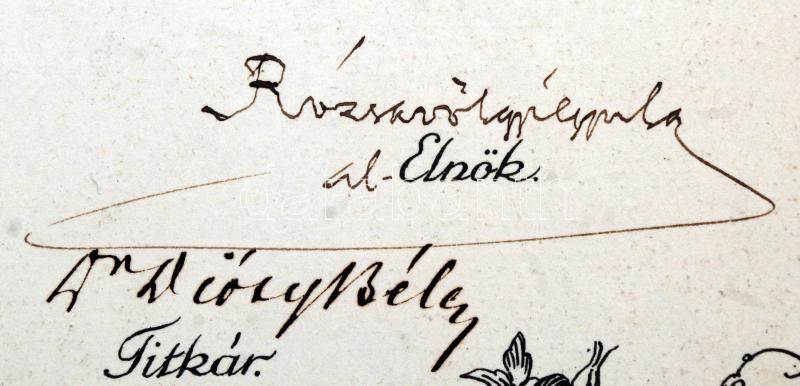 Rózsavölgyi Gyula
al-Elnök.
darabanth
Dr Diósy Béla
Titkár.